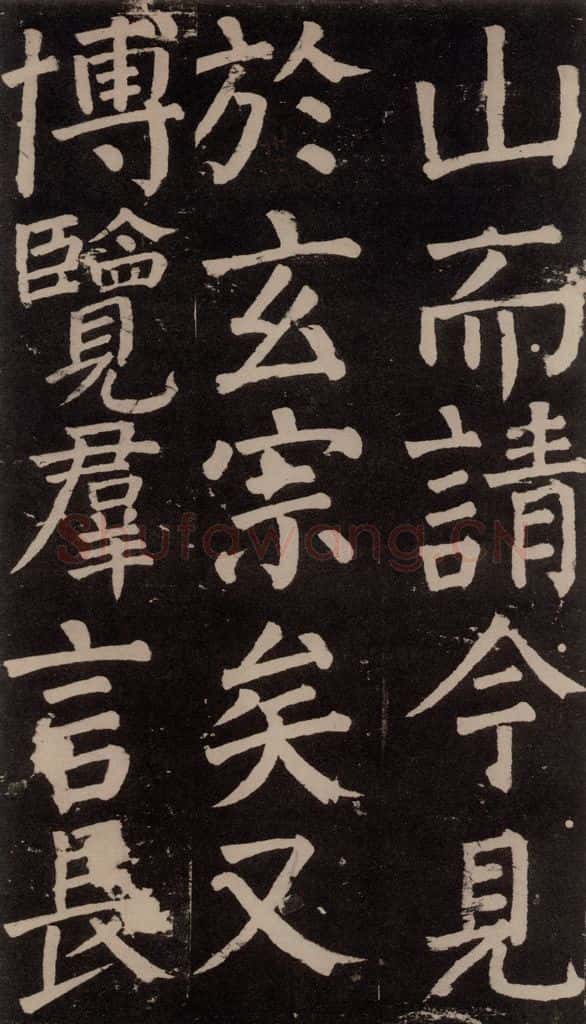 山而請今見
於玄宗矣又
博覽羣言長
Shufawang.CN